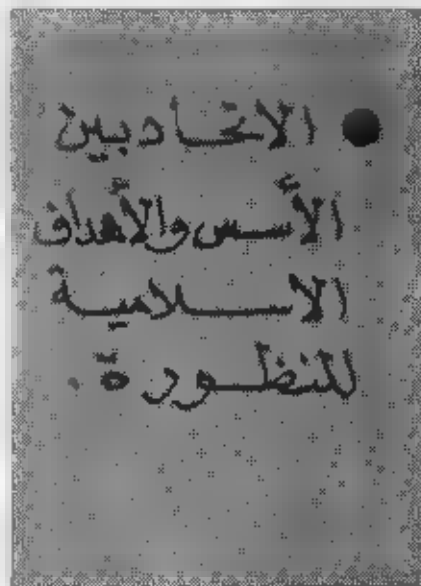 ● الاتحاد بين
الأسس والأهداف
الاسلامية
للنظورة .